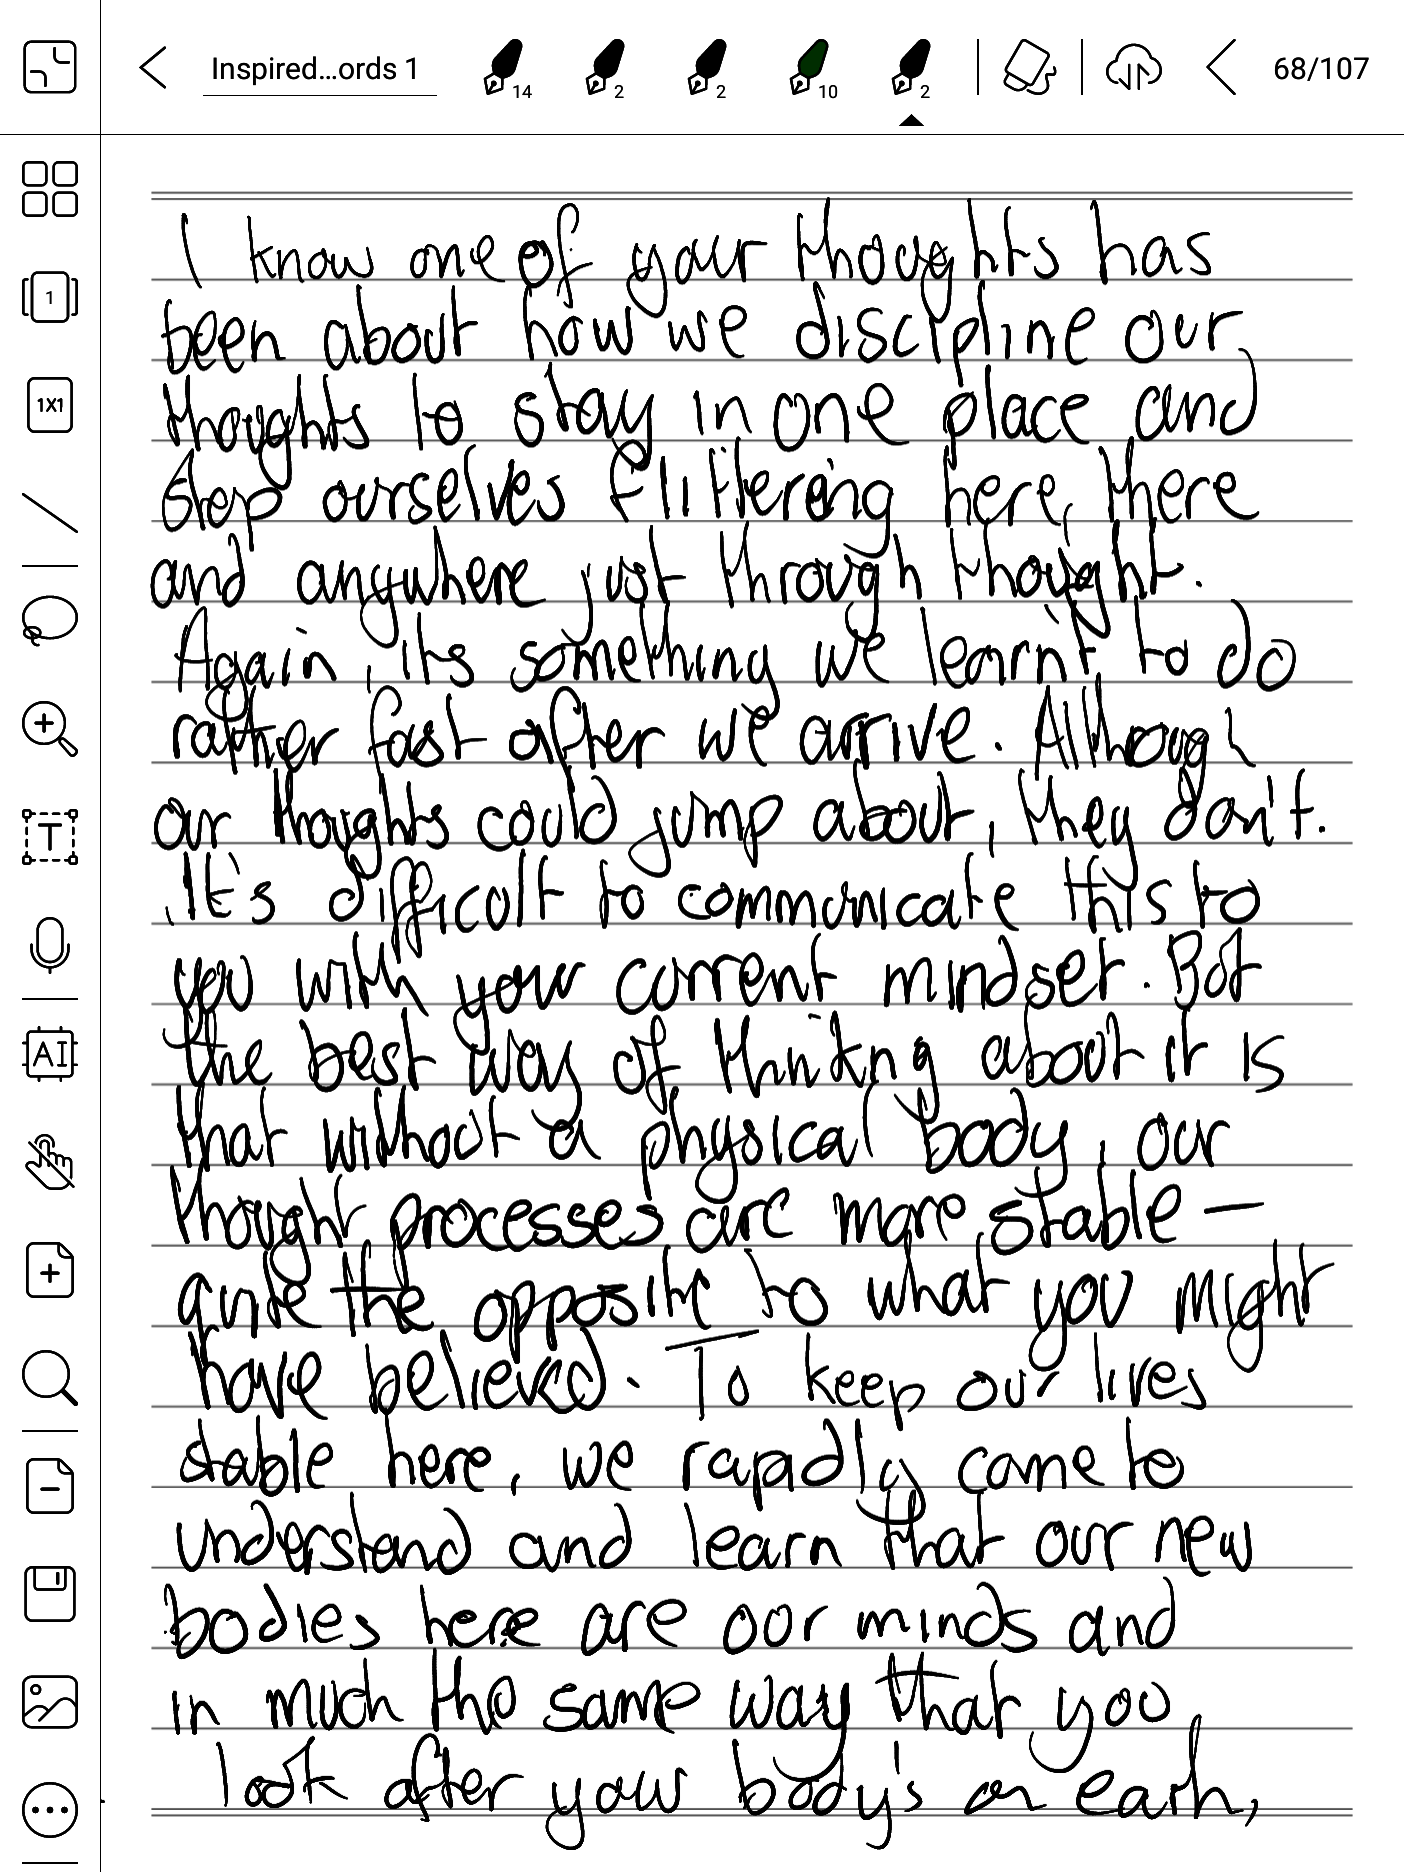 Inspired...ords 1
14
2
2
10
2
68/107
1
1X1
T
AI
I know one of your thoughts has
been about how we discipline our
thoughts to stay in one place and
stop ourselves flittering here, there
and anywhere just through thought.
Again, its something we learnt to do
rather fast after we arrive. Although
our thoughts could jump about, they don't.
It's difficult to communicate this to
you with your current mindset. But
the best way of thinkng about it is
that without a physical body, our
thought processes are more stable —
quite the opposite to what you might
have believed. To keep our lives
stable here, we rapadly come to
understand and learn that our new
bodies here are our minds and
in much the same way that you
look after your body's on earh,